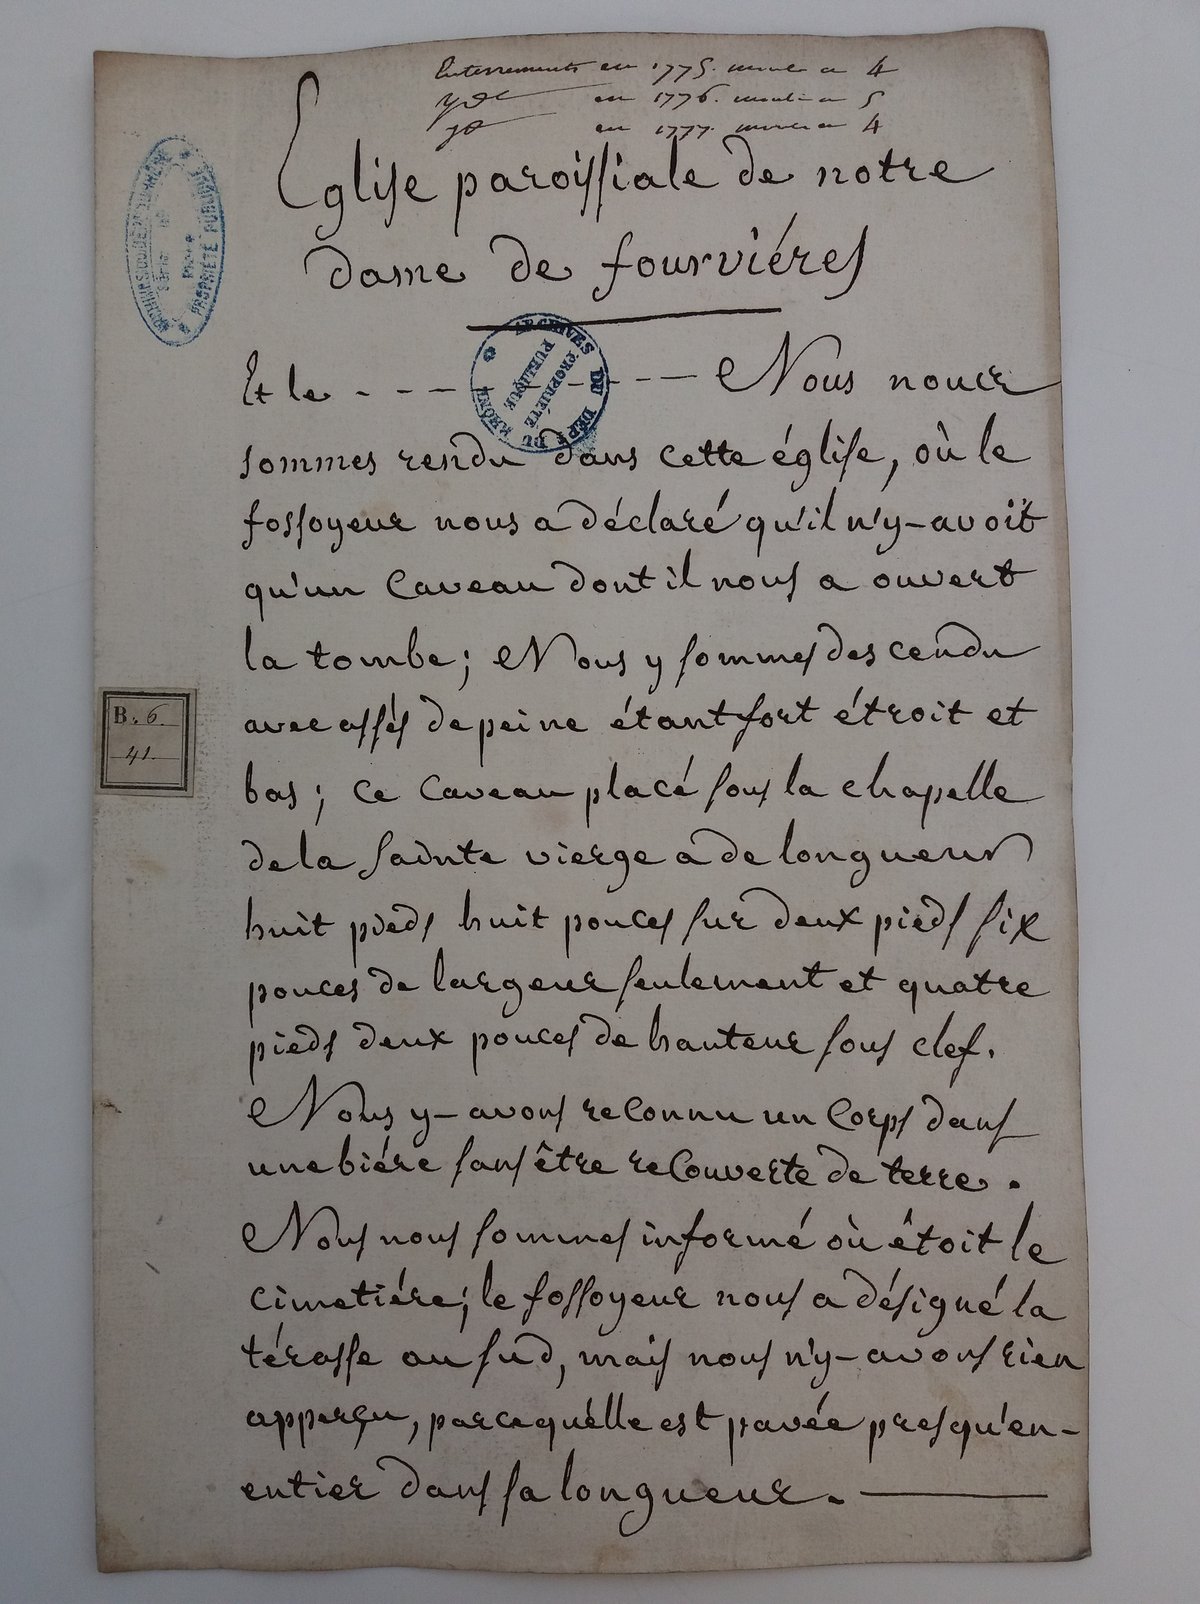 Enterrements en 1775. monte a 4
en 1776. monte a 5
en 1777. monte a 4
Eglise paroissiale de notre
dame de fourviéres
ARCHIVES DU DEPT DU RHÔNE
PROPRIÉTÉ PUBLIQUE
PROPRIÉTÉ PUBLIQUE
ARCHIVES DU DEPT DU RHÔNE
Et le - - - - - - - - Nous nous
sommes rendu dans cette église, où le
fossoyeur nous a déclaré qu'il n'y-avoit
qu'un Caveau dont il nous a ouvert
la tombe; Nous y sommes descendu
avec assés de peine étant fort étroit et
B. 6
41.
bas; Ce Caveau placé sous la chapelle
de la Sainte vierge a de longueur
huit pieds huit pouces sur deux pieds six
pouces de largeur seulement et quatre
pieds deux pouces de hauteur sous clef.
Nous y-avons reconnu un Corps dans
une biére sans être recouverte de terre.
Nous nous sommes informé où êtoit le
cimetiére; le fossoyeur nous a désigné la
térasse au sud, mais nous n'y-avons rien
apperçu, parcequ'elle est pavée presqu'en-
entier dans sa longueur.